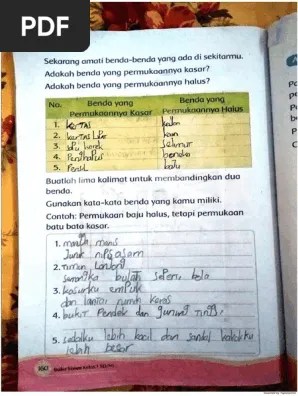 PDF
Sekarang amati benda-benda yang ada di sekitarmu.
Adakah benda yang permukaannya kasar?
Adakah benda yang permukaannya halus?
No. Benda yang Permukaannya Kasar Benda yang Permukaannya Halus
1. kertas
2. kain
3. sapu Selimut
4. Penghapus
5. batu
Buatlah lima kalimat untuk membandingkan dua
benda.
Gunakan kata-kata benda yang kamu miliki.
Contoh: Permukaan baju halus, tetapi permukaan
batu bata kasar.
1. manis
Jeruk nipis asam
2. Lonjong
Semangka bulat seperti bola
3. kasurku empuk
dan lantai rumah keras
4. bukit Pendek dan gunung tinggi
5. sedalku lebih kecil dan sandal bapakku
lebih besar
160